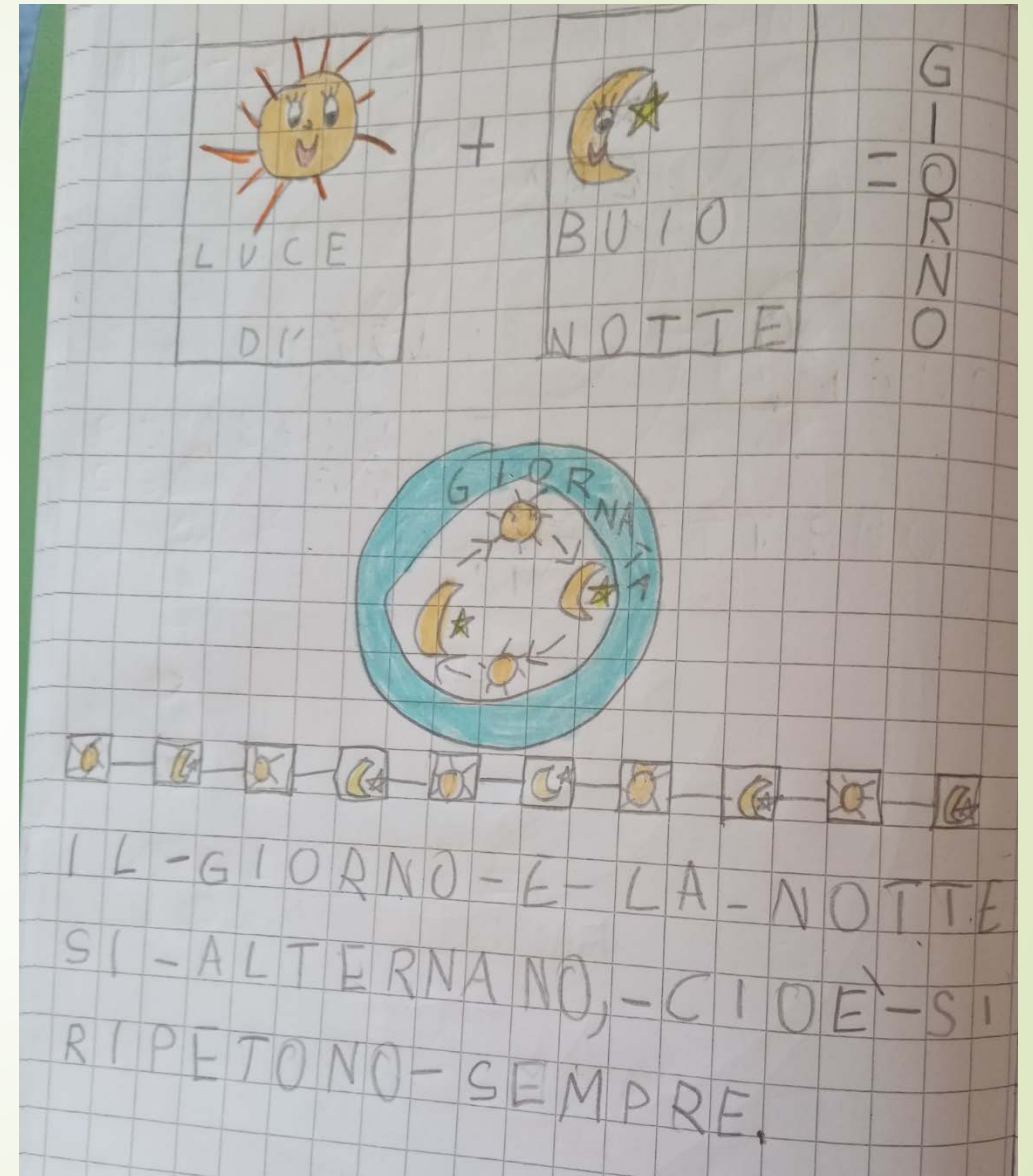 LUCE
DI'
+
BUIO
NOTTE
=
GIORNO
GIORNATA
IL-GIORNO-E-LA-NOTTE
SI-ALTERNANO,-CIOÈ-SI
RIPETONO-SEMPRE.